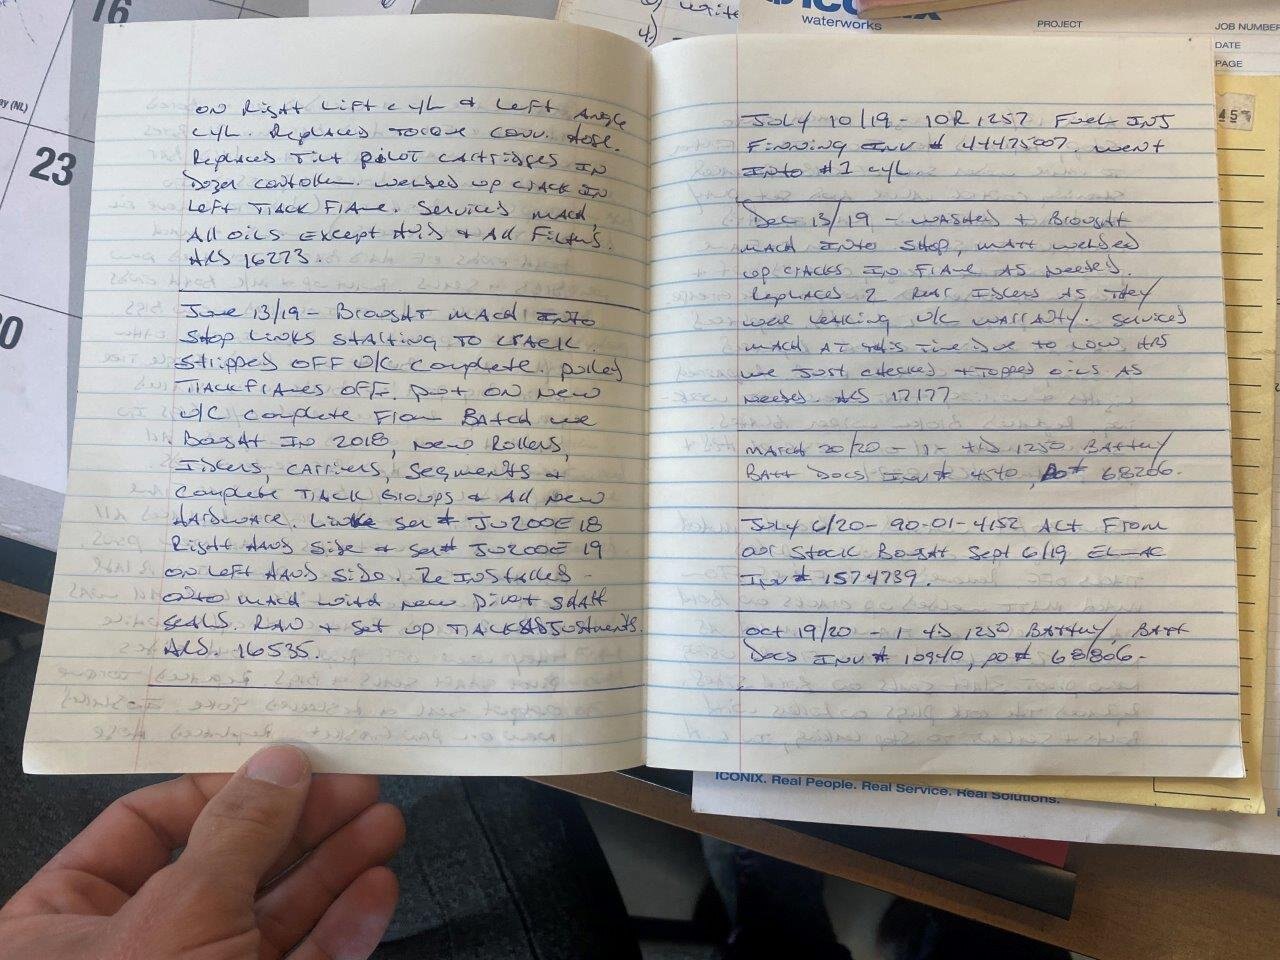 16
ay (NL)
23
30
4)
ICONIX
waterworks
PROJECT
JOB NUMBER
DATE
PAGE
45
ON Right Lift cyl & Left Angle
cyl. Replaced Torque conv. hose.
Replaced Tilt pilot cartridges IN
Dozer controller. welded up crack IN
Left Track Frame. Serviced mach,
All oils except Hyd & All Filters.
HRS 16273.
June 13/19 - Brought mach INTO
Shop Links starting to crack.
Stripped OFF U/C complete. pulled
Track frames OFF. put ON New
U/C complete From Batch we
Bought IN 2018, new Rollers,
Idlers, carriers, segments &
complete Track Groups & All New
Hardware. Links ser# JU200E18
Right Hand Side & ser# JU200E 19
ON Left Hand Side. Re Installed -
onto mach with new pivot shaft
seals. RAN & set up Track Adjustments.
HRS. 16535.
July 10/19 - 10R 1257 Fuel INJ
Finning INV # 44475007, went
INTO #1 cyl.
Dec 13/19 - washed & Brought
mach INTO Shop, matt welded
up cracks IN Frame AS needed.
Replaced 2 Rear Idlers AS They
were leaking, U/C warranty. Serviced
mach AT this Time Due to low HRS
we Just checked & Topped oils AS
needed. HRS 17177
March 20/20 - 1- HD 1250 Battery
Batt Docs INV # 4540, PO# 68206.
July 6/20- 90-01-4152 ALT From
our Stock Bought Sept 6/19 EL-AC
INV # 1574739.
Oct 19/20 - 1 HD 1250 Battery, Batt
Docs INV # 10940, PO# 68806-
ICONIX. Real People. Real Service. Real Solutions.